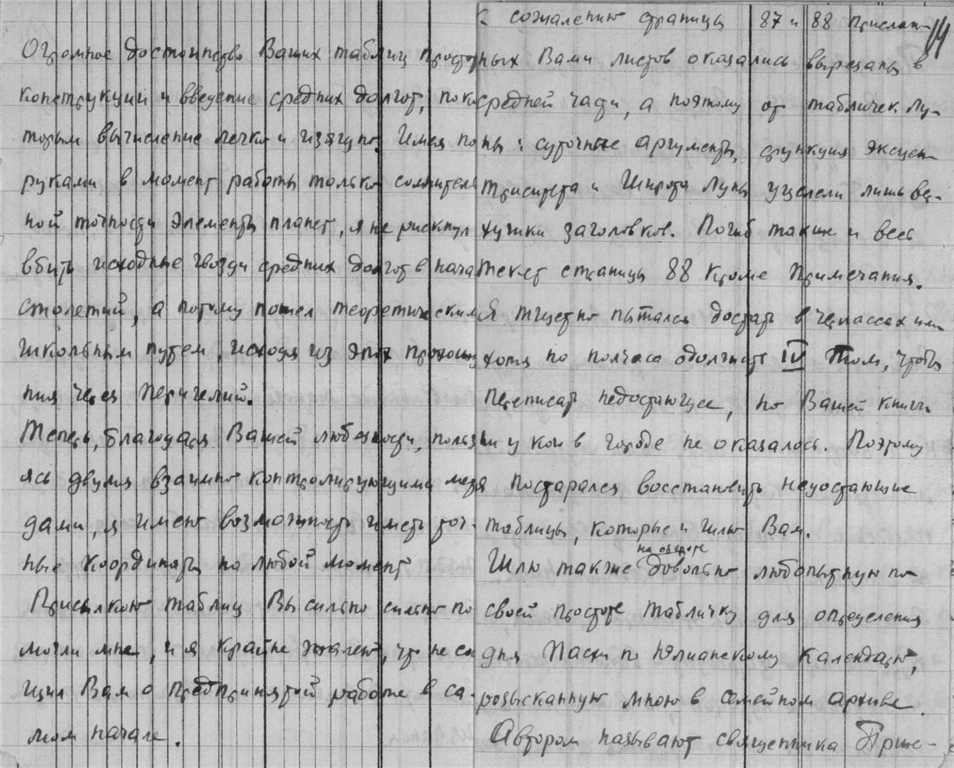 Огромное достоинство Ваших таблиц простор
конструкции и введение средних долгот, по ко
торым вычисление легко и изящно. Имея по
руками в момент работы только сомнитель
ной точности элементы планет, я не рискнул
вбить исходные гвозди средних долгот в нача
столетий, а потому пошел теоретическим
школьным путем, исходя из эпох прохожд
ния через перигелий.
Теперь, благодаря Вашей любезности, пользу
ясь двумя взаимно контролирующими мето
дами, я имею возможность иметь точ-
ные координаты на любой момент
Присылкою таблиц Вы сильно сильно по
могли мне, и я крайне жалею, что не со
щил Вам о предпринятой работе в са-
мом начале.
К сожалению страницы 87 и 88 прислан- 14
ных Вами листов оказались вырезаны в
средней части, а поэтому от табличек Лу-
ны: суточные аргументы, функция эксцен
триситета и Широта Луны уцелели лишь
заголовков. Погиб также и весь
текст страницы 88 кроме примечания.
Я тщетно пытался достать в Черкассах или
хотя по полчаса одолжить IV том, чтобы
переписать недостающее, но Вашей книги
ни у кого в городе не оказалось. Поэтому
я постарался восстановить недостающие
таблицы, которые и шлю Вам.
Шлю также на обороте довольно любопытную по
своей простоте табличку для определения
дня Пасхи по Юлианскому календарю,
розысканную мною в семейном архиве.
Автором называют священника